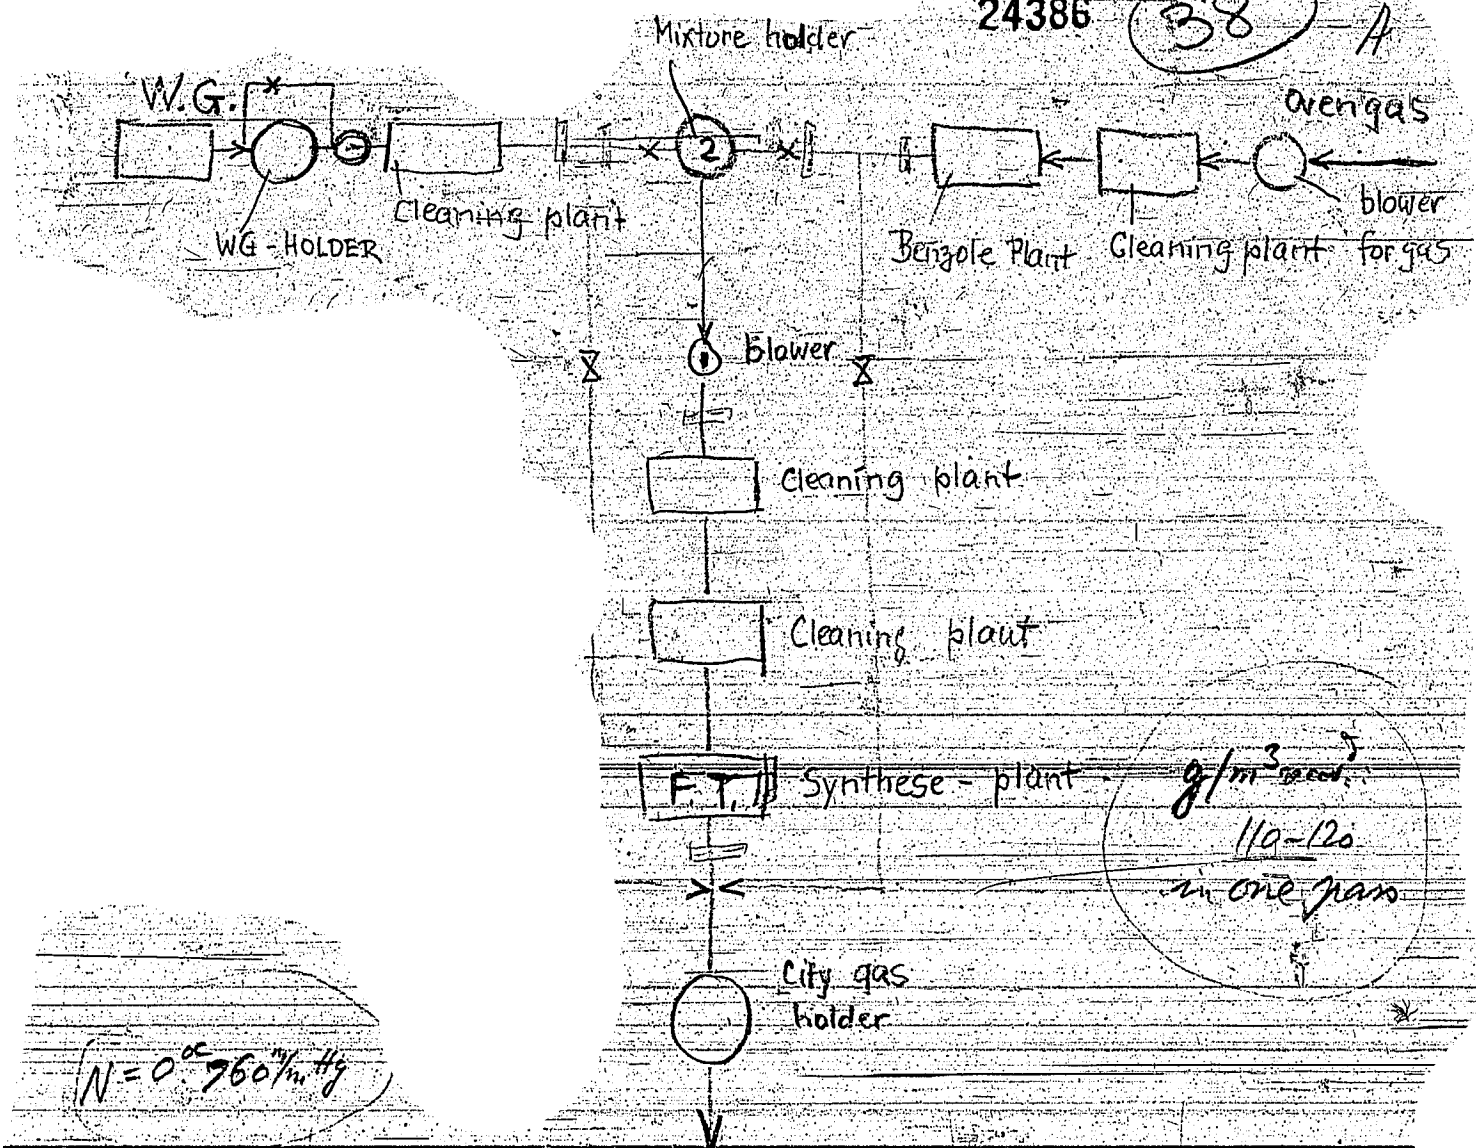 24386
38
A
Mixture holder
W.G.
oven gas
2
blower
for gas
Cleaning plant
WG-HOLDER
Benzole Plant
Cleaning plant
blower
Cleaning plant
Cleaning plant
F.T.
Synthese - plant
g/m³
110-120
in one pass
City gas
holder
N = 0°C 760 m/m Hg